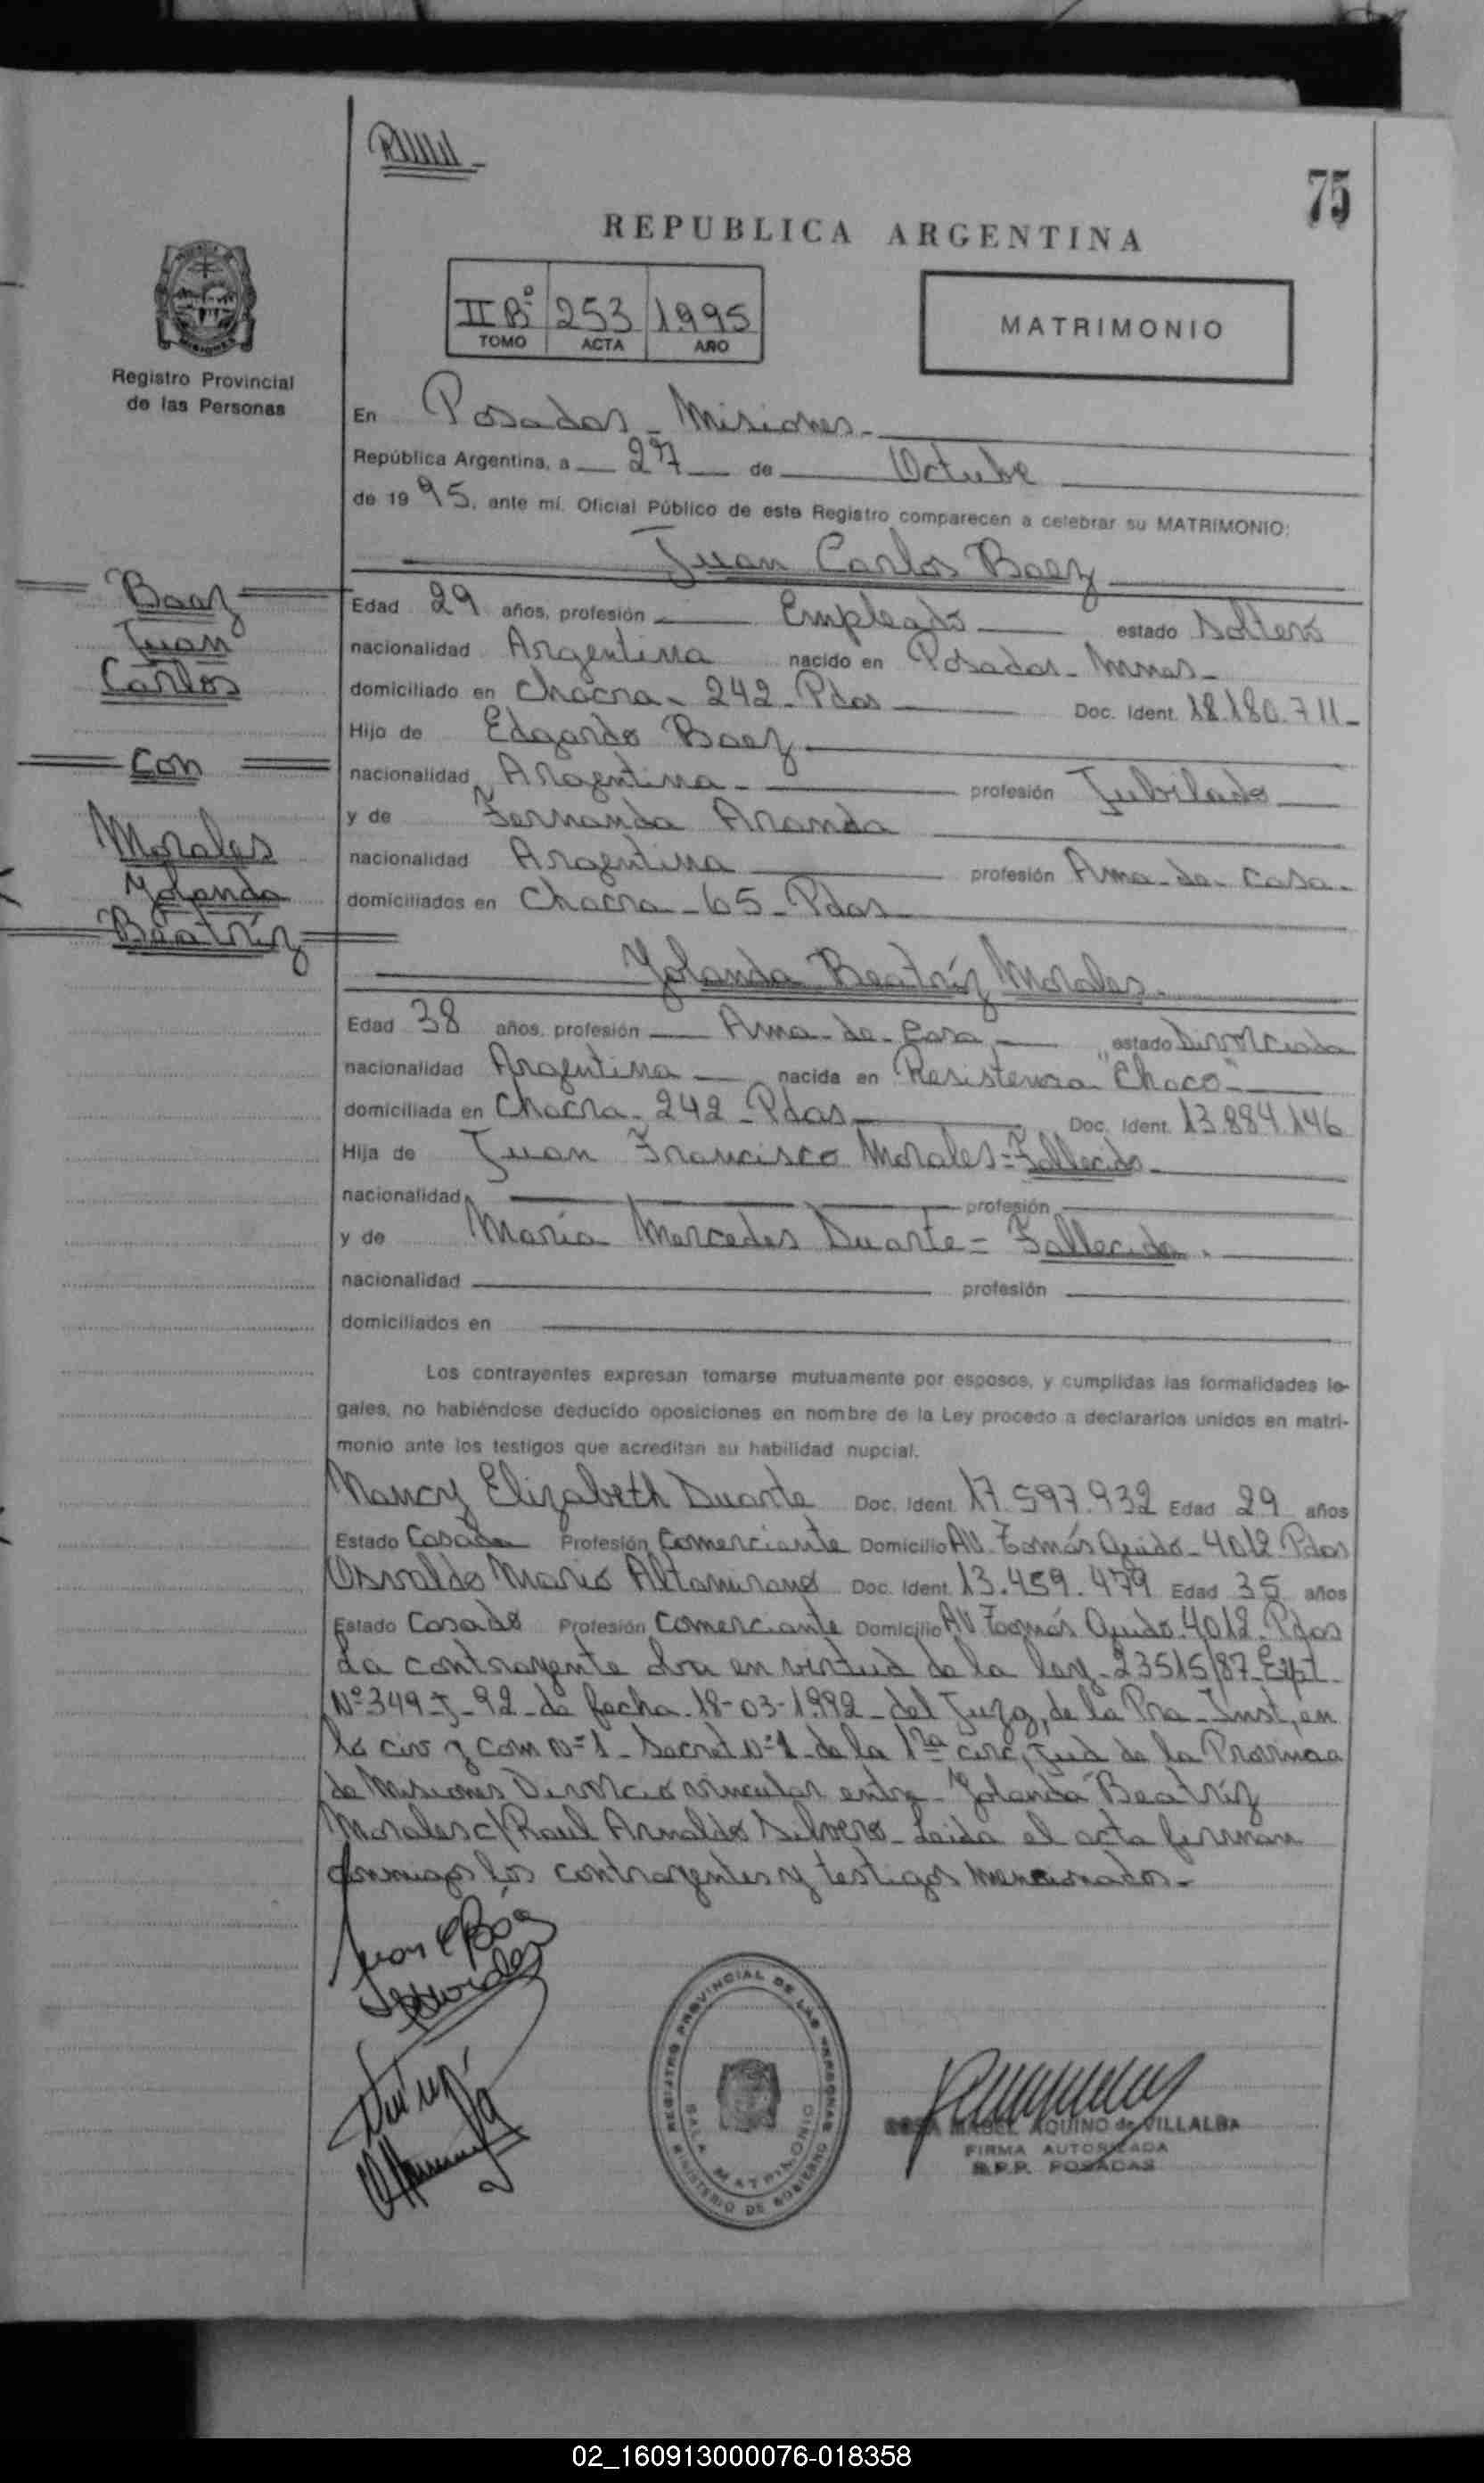 75
REPUBLICA ARGENTINA
IIBº 253 1995
TOMO ACTA AÑO
MATRIMONIO
Registro Provincial
de las Personas
En Posadas - Misiones -
República Argentina, a 27 de Octubre
de 1995, ante mí, Oficial Público de este Registro comparecen a celebrar su MATRIMONIO:
Juan Carlos Baez
Baez
Juan
Carlos
Con
Morales
Yolanda
Beatríz
Edad 29 años, profesión Empleado estado Soltero
nacionalidad Argentina nacido en Posadas - Mnes -
domiciliado en Chacra - 242 - Pdas Doc. Ident. 18.180.711 -
Hijo de Edgardo Baez
nacionalidad Argentina - profesión Jubilado
y de Fernanda Aranda
nacionalidad Argentina profesión Ama - de - casa -
domiciliados en Chacra - 65 - Pdas
Yolanda Beatríz Morales -
Edad 38 años, profesión Ama - de - Casa estado Divorciada
nacionalidad Argentina nacida en Resistencia "Chaco" -
domiciliada en Chacra - 242 - Pdas Doc. Ident. 13.884.146
Hija de Juan Francisco Morales = Fallecido -
nacionalidad profesión
y de María Mercedes Duarte = Fallecida .
nacionalidad profesión
domiciliados en
Los contrayentes expresan tomarse mutuamente por esposos, y cumplidas las formalidades le-
gales, no habiéndose deducido oposiciones en nombre de la Ley procedo a declararlos unidos en matri-
monio ante los testigos que acreditan su habilidad nupcial.
Nancy Elizabeth Duarte Doc. Ident. 17.597.932 Edad 29 años
Estado Casada Profesión Comerciante Domicilio AV. Tomás Guido - 4012 - Pdas
Osvaldo Mario Altamirano Doc. Ident. 13.459.479 Edad 35 años
Estado Casado Profesión Comerciante Domicilio AV. Tomás Guido - 4012 - Pdas
La contrayente en virtud de la ley - 23515/87 - Expt -
Nº 349 - J - 92 - de fecha - 18-03-1992 - del Juzg, de la Pra - Inst, en
lo civ y com Nº 1 - Secret Nº 1 - de la 1ra circ, Jud de la Provincia
de Misiones Divorcio vincular entre - Yolanda Beatríz
Morales c/ Raul Arnaldo Silvero - Leida el acta firman
conmigo los contrayentes y testigos mencionados -
REGISTRO PROVINCIAL DE LAS PERSONAS
MINISTERIO DE GOBIERNO
SALA MATRIMONIO
MABEL AQUINO de VILLALBA
FIRMA AUTORIZADA
R.P.P. POSADAS
02_160913000076-018358